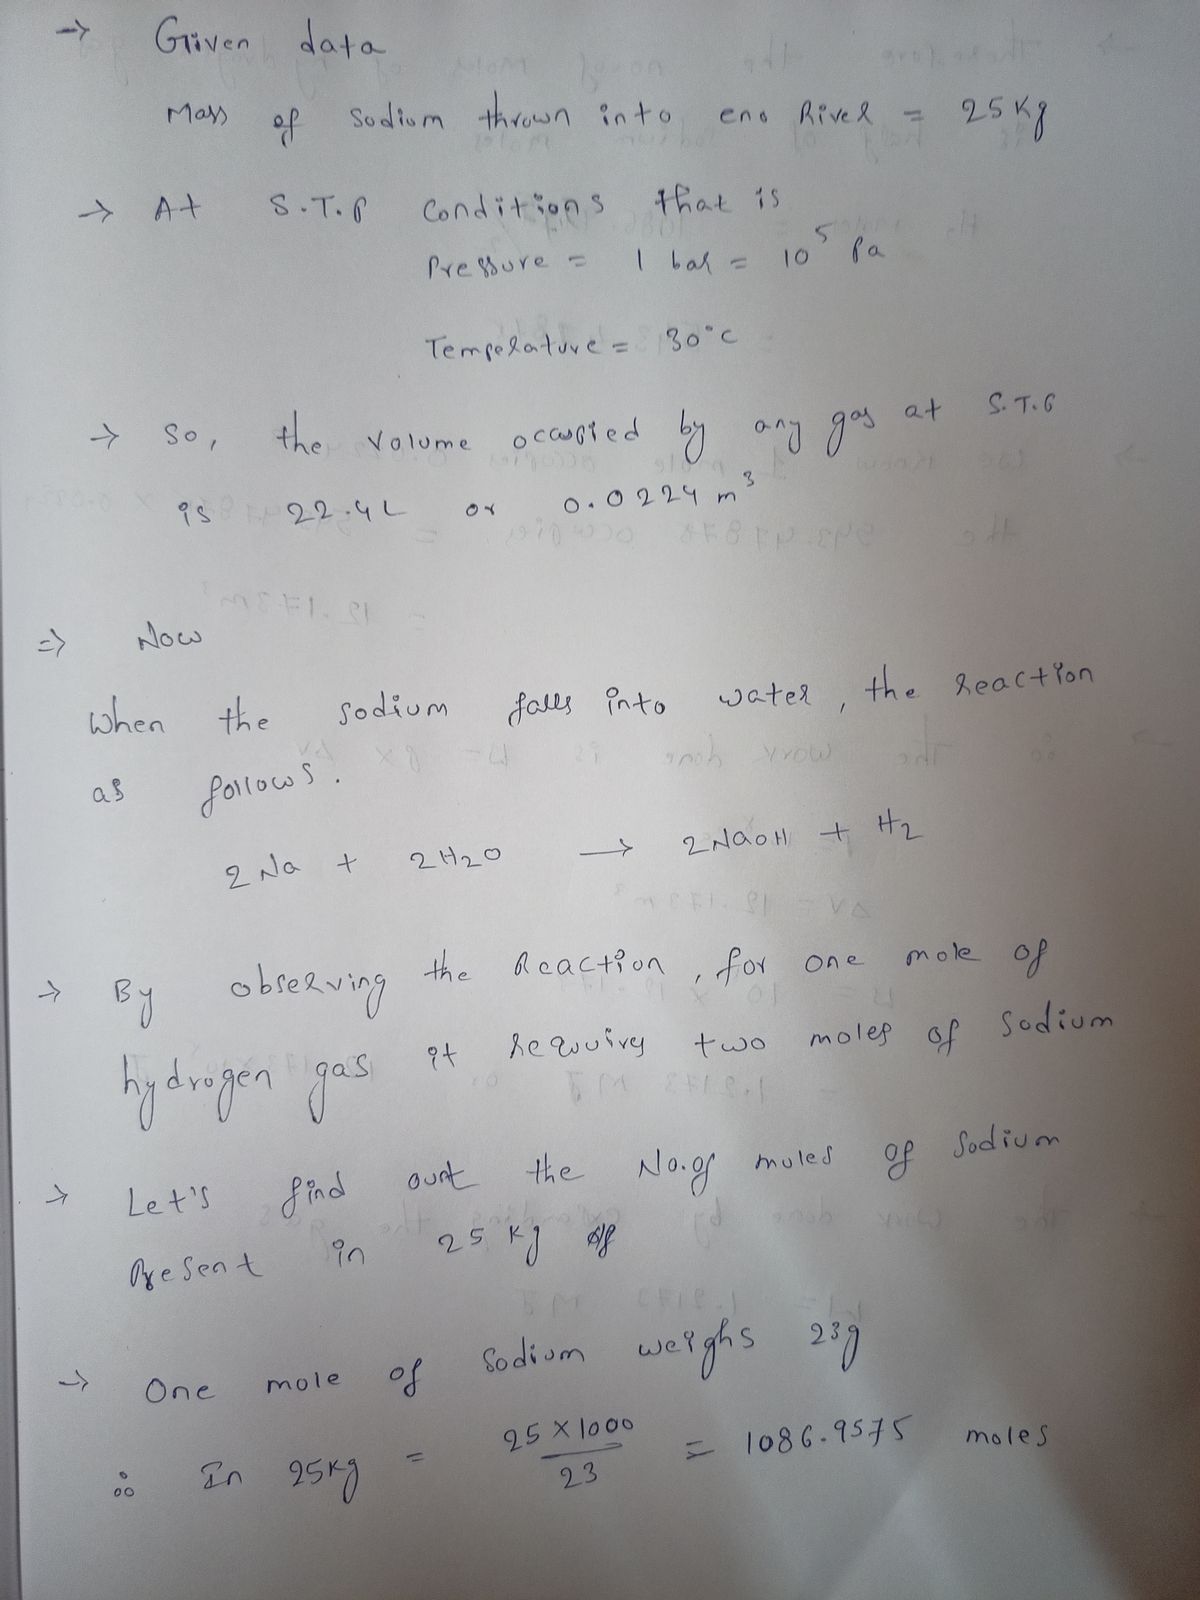 → Given data
Mass of Sodium thrown into eno River = 25 Kg
→ At S.T.P Conditions that is
Pressure = 1 bar = 10⁵ Pa
Temperature = 30°C
→ So, the Volume occupied by any gas at S.T.P
is 22.4L or 0.0224 m³
⇒ Now
When the sodium falls into water, the reaction
as follows.
2 Na + 2H₂O → 2NaOH + H₂
→ By observing the Reaction, for one mole of
hydrogen gas it requires two moles of Sodium
→ Let's find out the No.of moles of Sodium
Present in 25 Kg
→ One mole of Sodium weighs 23g
∴ In 25Kg = 25 × 1000 / 23 = 1086.9575 moles